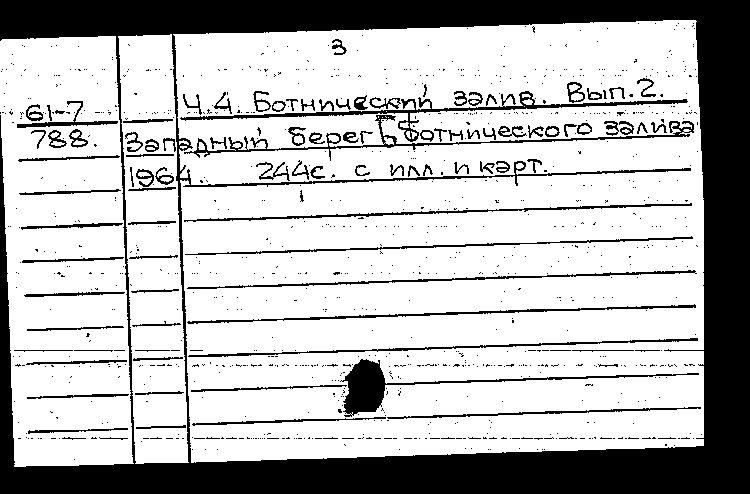 3
61-7 Ч.4. Ботнический залив. Вып.2.
788. Западный берег Ботнического залива
1964. 244с. с илл. и карт.